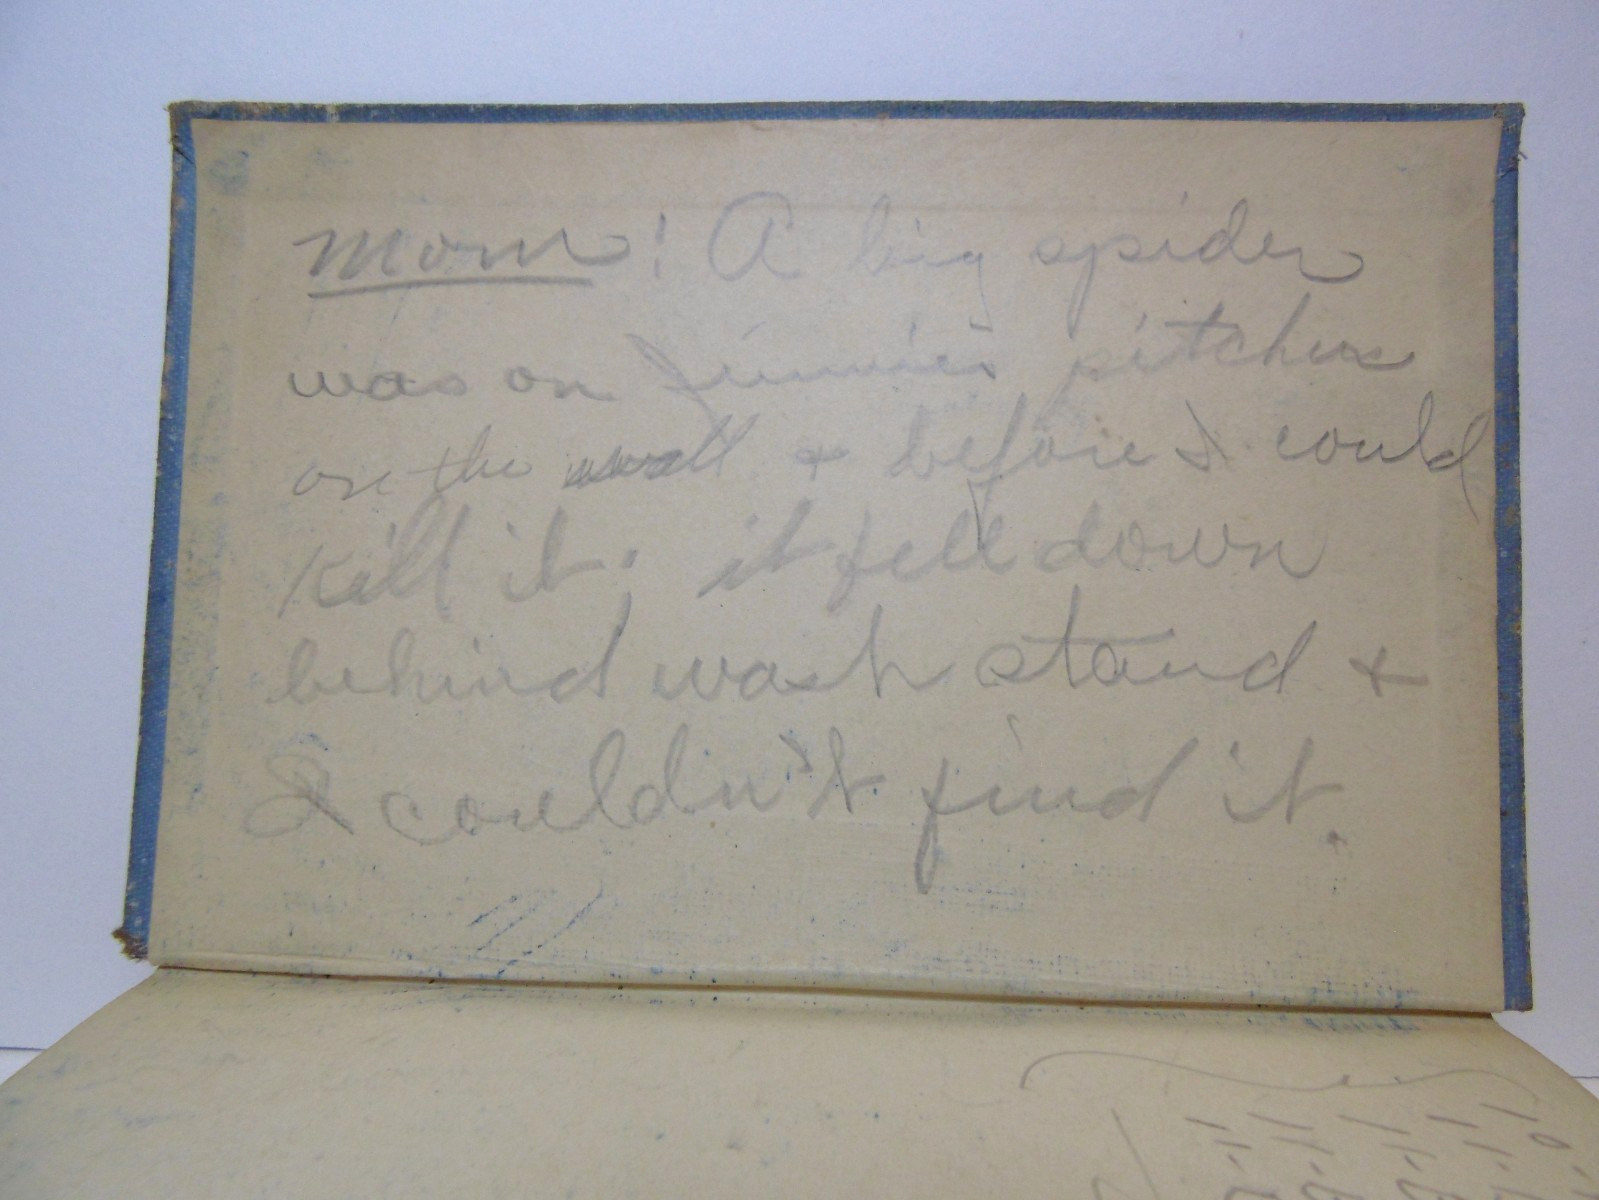 Mom! A big spider
was on Jimmie's pitcher
on the wall + before I could
kill it, it fell down
behind wash stand +
I couldn't find it.